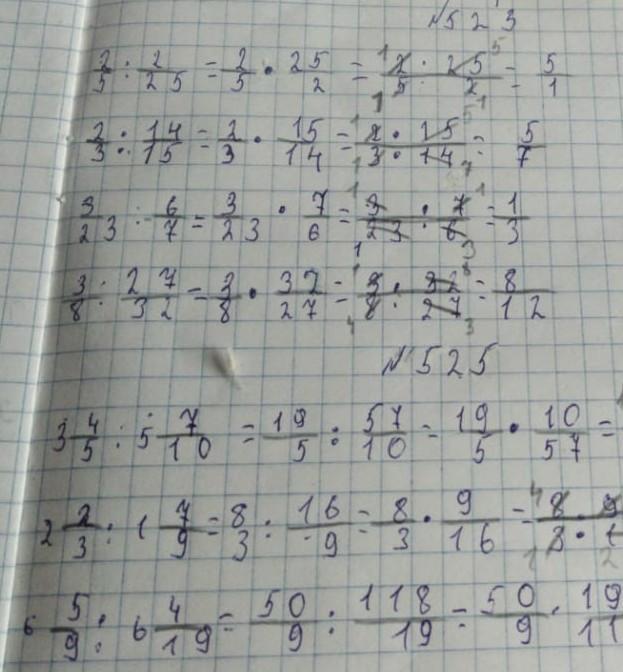 №523
2/5 : 2/25 = 2/5 · 25/2 = 2·25/5·2 = 5/1
2/3 : 14/15 = 2/3 · 15/14 = 2·15/3·14 = 5/7
3/23 : 6/7 = 3/23 · 7/6 = 3·7/23·6 = 1/3
3/8 : 27/32 = 3/8 · 32/27 = 3·32/8·27 = 8/12
№525
3 4/5 : 5 7/10 = 19/5 : 57/10 = 19/5 · 10/57 =
2 2/3 : 1 7/9 = 8/3 : 16/9 = 8/3 · 9/16 = 8·9/3·1
6 5/9 : 6 4/19 = 50/9 : 118/19 = 50/9 · 19/11